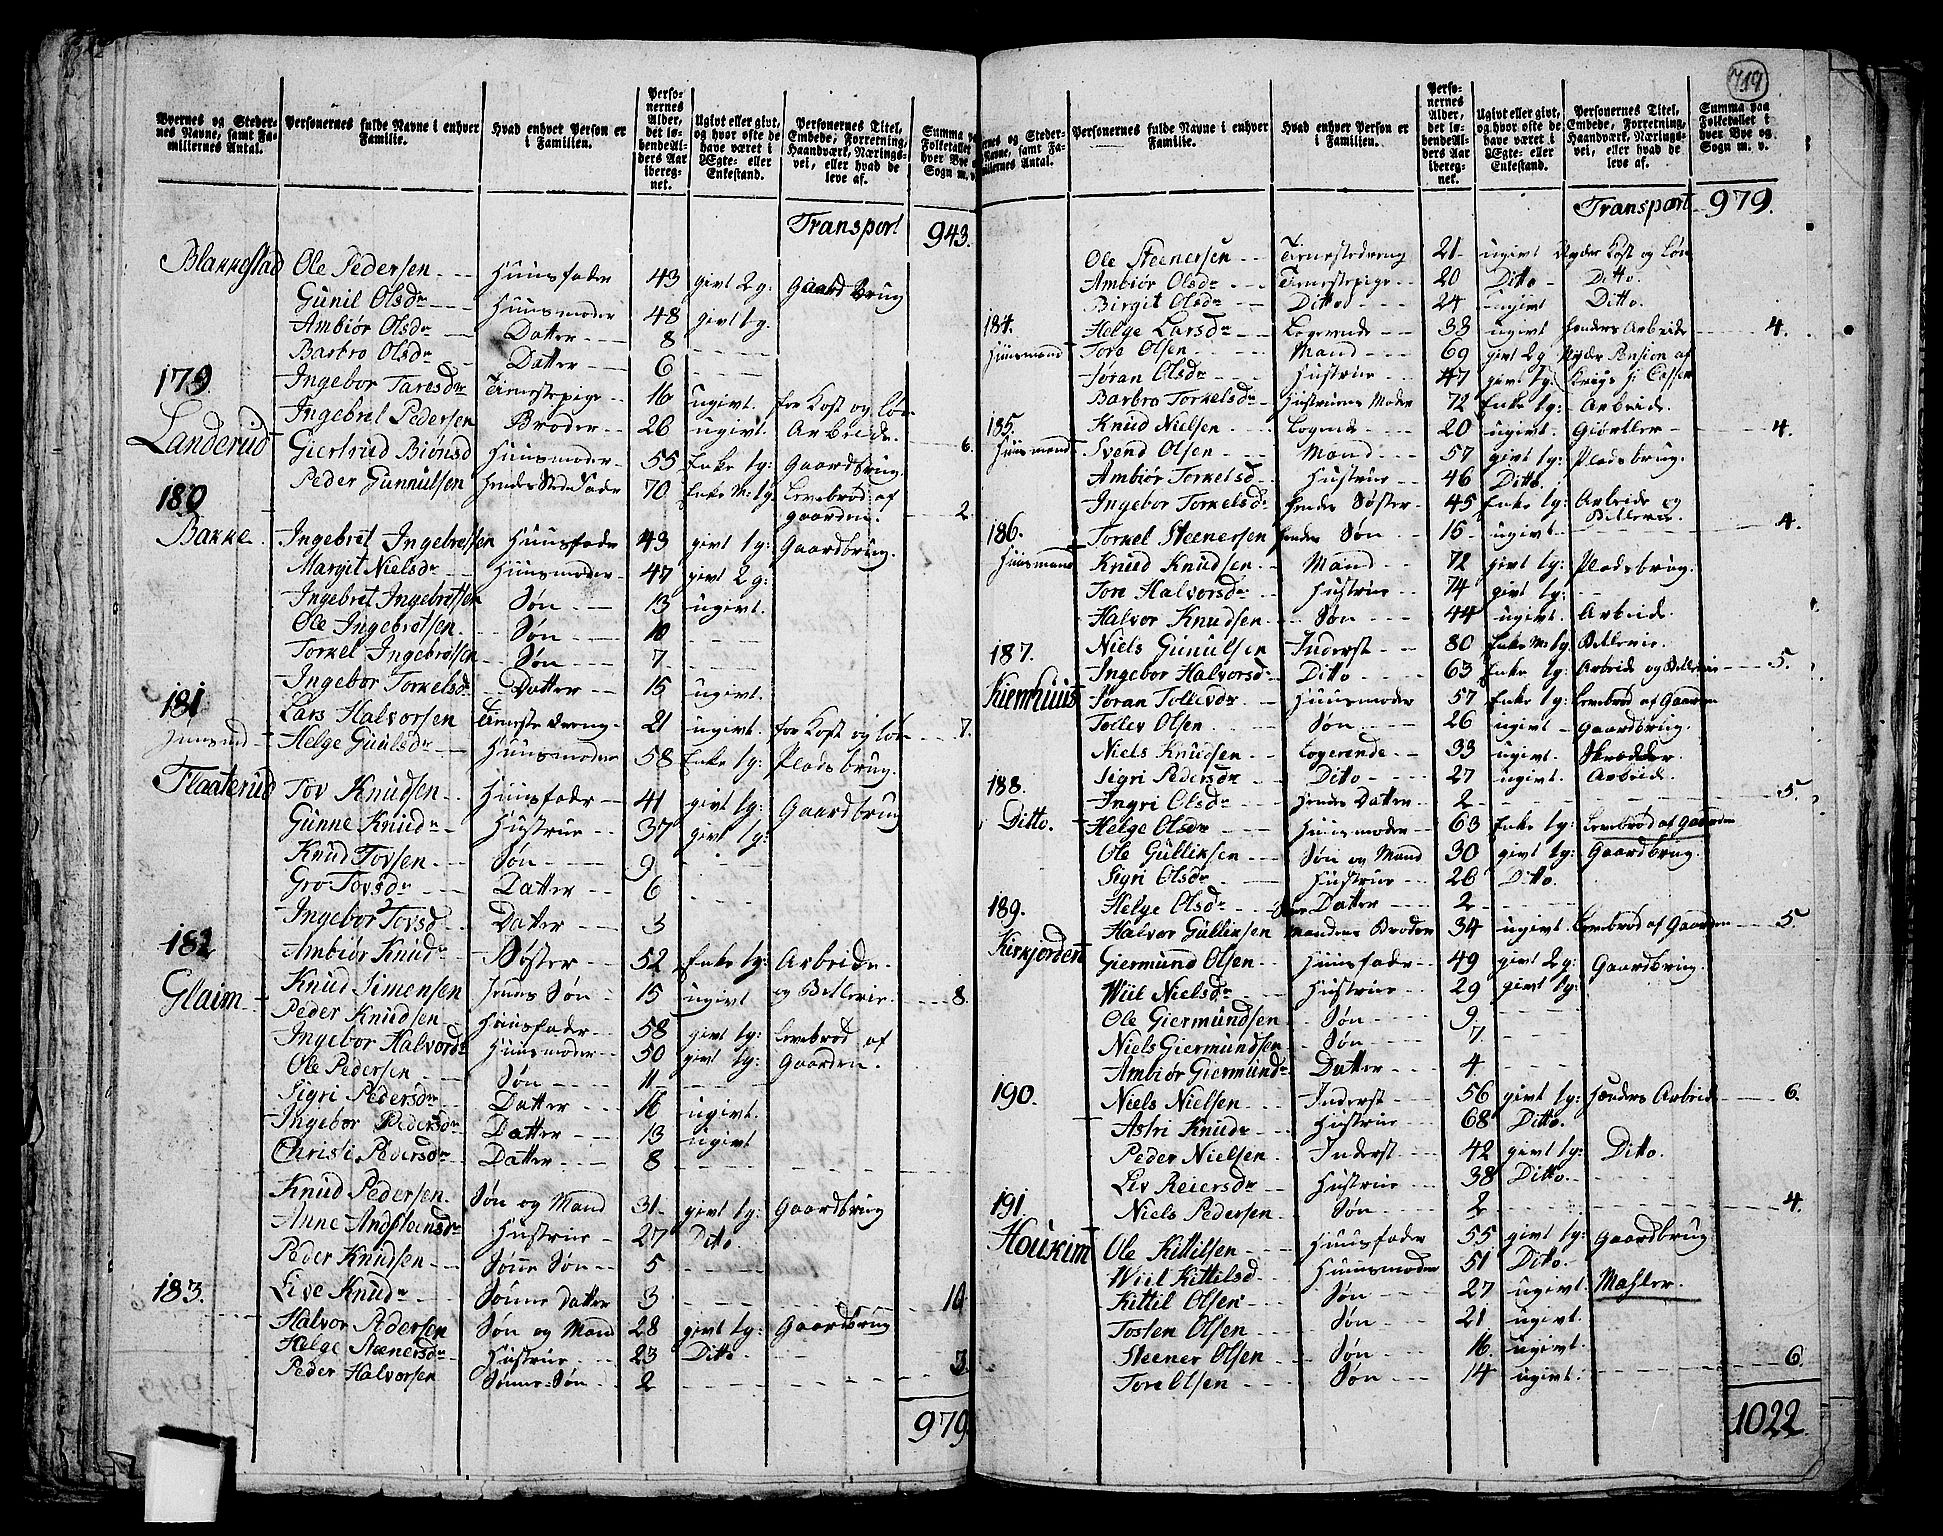 Byernes og Stedernes Navne, samt Familiernes Antal.
Personernes fulde Navne i enhver Familie.
Hvad enhver Person er i Familien.
Personernes Alder, det løbende Alders Aar iberegnet.
Ugivt eller givt, og hvor ofte de have været i Ægte- eller Enkestand.
Personernes Titel, Embede, Forretning, Haandværk, Næringsvei, eller hvad de leve af.
Summa paa Folketallet i hver Bye og Sogn m. v.
Transport 943.
Blakkestad Ole Pedersen Huusfader 43 givt 2 g: Gaardbrug
Gunil Olsdr Huusmoder 48 givt 1 g.
Ambiør Olsdr Datter 8
Barbro Olsdr Datter 6
179 Ingebor Taresdr Tienestepige 16 ugivt. for Kost og Løn
Ingebret Pedersen Broder 26 ugivt. Arbeide. 6.
Landerud Giertrud Biønsd Huusmoder 55 Enke 1 g: Gaardbrug.
Peder Gunnulsen hendes Sted Fader 70 Enke M: 1 g Levebrød af Gaarden. 2.
180
Bakke Ingebret Ingebretsen Huusfader 43 givt 1 g: Gaardbrug.
Margit Nielsdr Huusmoder 47 givt 2 g:
Ingebret Ingebretsen Søn 13 ugivt.
Ole Ingebretsen. Søn 10
Torkel Ingebretsen Søn 7
Ingebor Torkelsd. Datter 15 ugivt
181 Lars Halvorsen Tieneste dreng 21 ugivt. for Kost og Løn 7.
Helge Guulsdr Huusmoder 58 Enke 1 g: Pladsbrug.
Flaaterud Tov Knudsen Huusfader 41 givt 1 g: Gaardbrug
Gunne Knudr Hustrue 37 givt 1 g:
Knud Tovsen Søn 9
Gro Tovsdr Datter 6
Ingebor Tovsd Datter 3
182 Ambiør Knudr Søster 52 Enke 1 g: Arbeide
Knud Simensen hendes Søn 15 ugivt og Betlerie. 8.
Glaim Peder Knudsen Huusfader 58 givt 1 g: Levebrød af
Ingebor Halvordr Huusmoder 50 givt 1 g: Gaarden.
Ole Pedersen Søn 11
Sigri Pedersdr Datter 16 ugivt.
Ingebor Pedersdr Datter 13 ugivt
Christi Pedersdr Datter 8
Knud Pedersen. Søn og Mand 31 givt 1 g: Gaardbrug
Anne Andsteensdr Hustrue 27 Ditto.
Peder Knudsen Sønne Søn 5
183. Live Knudr Sønne Datter 3 10
Halvor Pedersen Søn og Mand 28 givt 1 g: Gaardbrug
Helge Steenersdr Hustrue 23 Ditto
Peder Halvorsen Sønne Søn 2 3.
979.
719
Byernes og Stedernes Navne, samt Familiernes Antal.
Personernes fulde Navne i enhver Familie.
Hvad enhver Person er i Familien.
Personernes Alder, det løbende Alders Aar iberegnet.
Ugivt eller givt, og hvor ofte de have været i Ægte- eller Enkestand.
Personernes Titel, Embede, Forretning, Haandværk, Næringsvei, eller hvad de leve af.
Summa paa Folketallet i hver Bye og Sogn m. v.
Transport 979.
Ole Steenersen Tienestedreng 21 ugivt Nyder Kost og Løn
Ambiør Olsdr Tienestepige 20 Ditto Ditto.
Birgit Olsdr Ditto 24 ugivt Ditto.
184. Helge Larsdr Logerende 38 ugivt Henders Arbeide 4.
Huusmand Tore Olsen Mand 69 givt 2 g Nyder Pension af
Jøran Olsdr Hustrue 47 givt 1 g: Krigs Cassen
Barbro Torkelsdr Hustruens Moder 72 Enke 1 g: Arbeide.
185. Knud Nielsen Logerende 20 ugivt. Giørtler 4.
Huusmand Svend Olsen Mand 57 givt 1 g: Pladsbrug.
Ambiør Torkelsd Hustrue 46 Ditto.
Ingebor Torkelsdr hendes Søster 45 Enke 1 g: Arbeide og Betlerie.
186. Torkel Steenersen hendes Søn 15 ugivt. 4.
Huusmand Knud Knudsen Mand 72 givt 1 g: Pladsbrug.
Tore Halvorsdr Hustrue 74 givt 1 g:
Halvor Knudsen Søn 44 ugivt. Arbeide.
187. Niels Gunulsen Inderst 80 Enke M 1 g. Betlerie.
Ingebor Halvorsd Ditto 63 Enke 1 g: Arbeide og Betlerie 5.
Kiemhuus Jøran Tollevdr Huusmoder 57 Enke 1 g: Levebrød af Gaarden
Tollev Olsen Søn 26 ugivt Gaardbrug.
Niels Knudsen Logerende 33 ugivt. Skrædder
Sigri Pedersdr Ditto 27 ugivt. Arbeide.
188. Ingri Olsdr hendes Datter 2 5.
Ditto. Helge Olsdr Huusmoder 63 Enke 1 g: Levebrød af Gaarden
Ole Gulliksen Søn og Mand 30 givt 1 g: Gaardbrug.
Sigri Olsdr Hustrue 26 Ditto.
189. Helge Olsdr Datter 2
Halvor Gulliksen Mandens Broder 34 ugivt. Levebrød af Gaarden 5.
Kirkjorden Giermund Olsen Huusfader 49 givt 2 g: Gaardbrug.
Wiil Nielsdr Hustrue 29 givt 1 g:
Ole Giermundsen Søn 9
Niels Giermundsen Søn 7
Ambiør Giermundr Datter 4.
190. Niels Nielsen Inderst 56 givt 1 g: Hænders Arbeide 6.
Astri Knudr Hustrue 68 Ditto.
Peder Nielsen Inderst 42 givt 1 g: Ditto.
Liv Reiersdr Hustrue 38 Ditto.
191. Niels Pedersen Søn 2 4.
Houkim Ole Kittilsen Huusfader 55 givt 1 g: Gaardbrug
Wiil Kittilsd Huusmoder 51 Ditto.
Kittil Olsen Søn 27 ugivt. Mahler.
Tosten Olsen Søn 21 ugivt.
Steener Olsen Søn 16 ugivt.
Tore Olsen Søn 14 ugivt. 6.
1022.